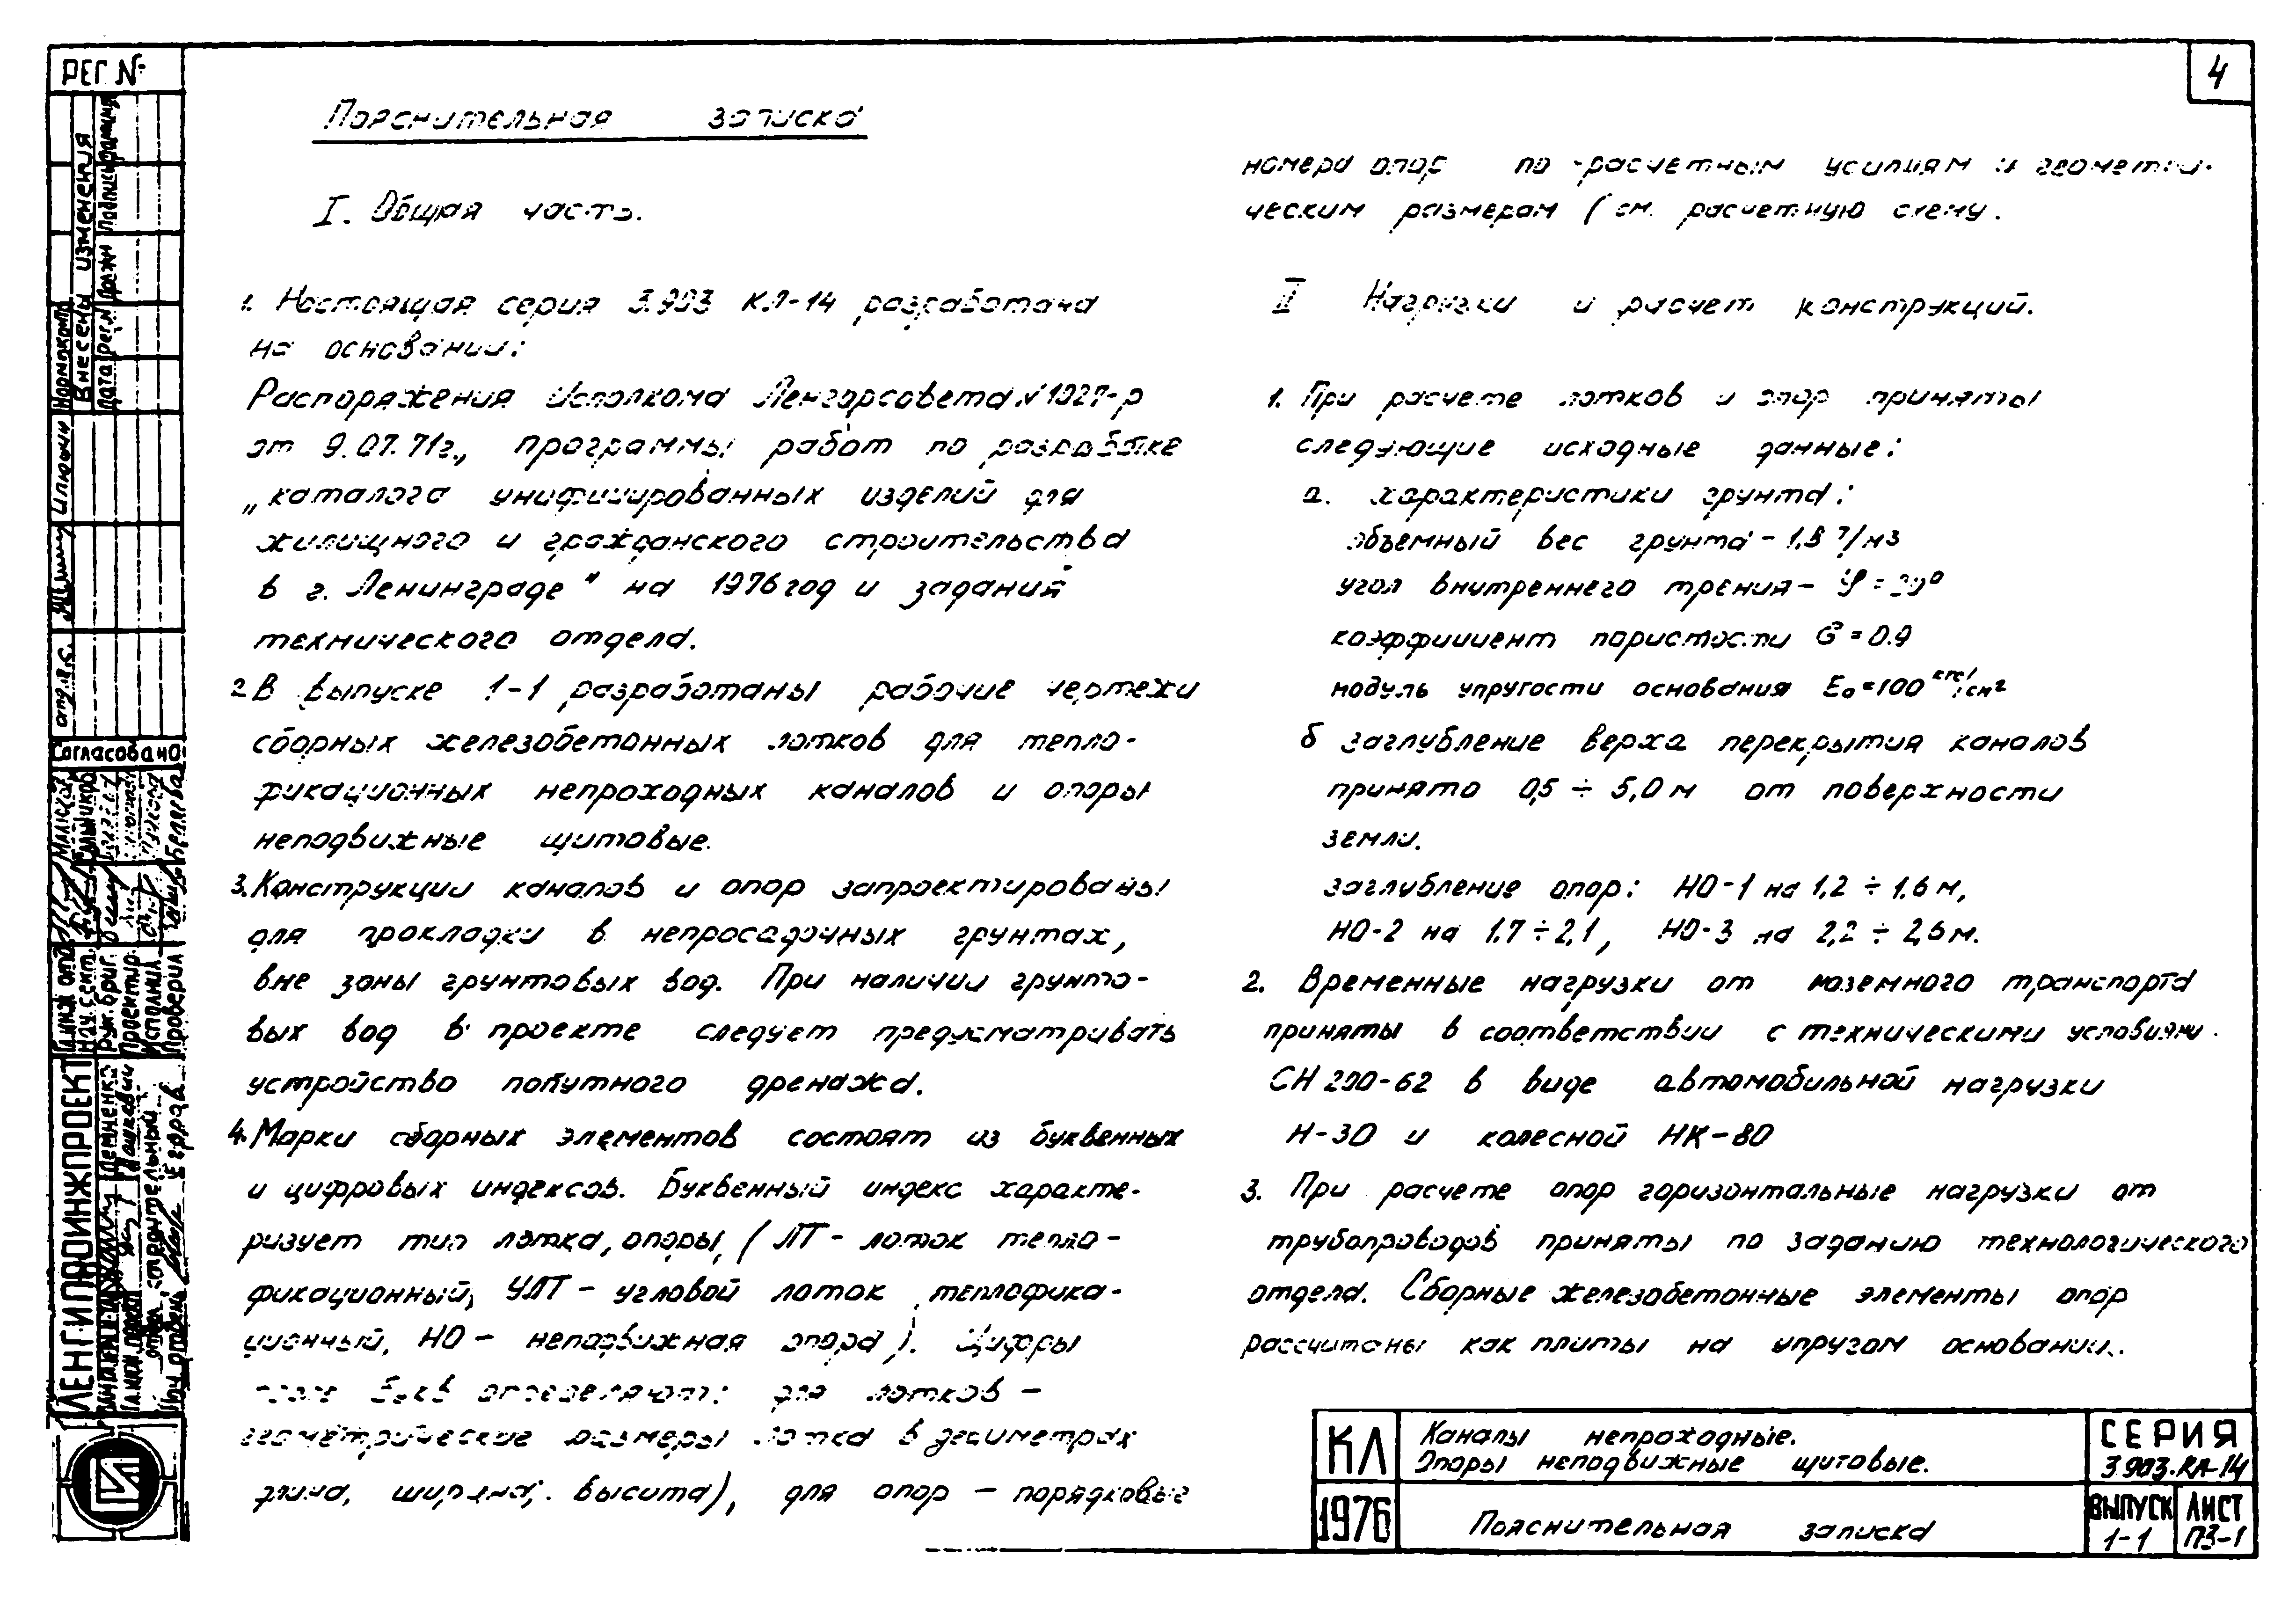 РЕГ №
4
Пояснительная записка
I. Общая часть.
1. Настоящая серия 3.903 КЛ-14 разработана
на основании:
Распоряжения Исполкома Ленгорсовета № 1027-р
от 9.07.71г., программы работ по разработке
„каталога унифицированных изделий для
жилищного и гражданского строительства
в г. Ленинграде" на 1976 год и заданий
технического отдела.
2 В выпуске 1-1 разработаны рабочие чертежи
сборных железобетонных лотков для тепло-
фикационных непроходных каналов и опоры
неподвижные щитовые.
3. Конструкции каналов и опор запроектированы
для прокладки в непросадочных грунтах,
вне зоны грунтовых вод. При наличии грунто-
вых вод в проекте следует предусматривать
устройство попутного дренажа.
4. Марки сборных элементов состоят из буквенных
и цифровых индексов. Буквенный индекс характе-
ризует тип лотка, опоры, (ЛТ - лоток тепло-
фикационный, УЛТ - угловой лоток теплофика-
ционный, НО - неподвижная опора). Цифры
букв определяют: для лотков -
геометрические размеры лотка в дециметрах
длина, ширина, высота), для опор - порядковые
номера опор по расчетным усилиям и геометри-
ческим размерам (см. расчетную схему.
II Нагрузки и расчет конструкций.
1. При расчете лотков и опор приняты
следующие исходные данные:
а. характеристики грунта:
объемный вес грунта - 1,8 т/м3
угол внутреннего трения - φ =
коэффициент пористости = 0.9
модуль упругости основания Е₀=100 кгс/см²
б заглубление верха перекрытия каналов
принято 0,5 ÷ 5,0 м от поверхности
земли.
заглубление опор: НО-1 на 1,2 ÷ 1,6 м,
НО-2 на 1.7 ÷ 2,1, НО-3 на 2,2 ÷ 2,6 м.
2. Временные нагрузки от наземного транспорта
приняты в соответствии с техническими условиями
СН 200-62 в виде автомобильной нагрузки
Н-30 и колесной НК-80
3. При расчете опор горизонтальные нагрузки от
трубопроводов приняты по заданию технологического
отдела. Сборные железобетонные элементы опор
рассчитаны как плиты на упругом основании.
КЛ
1976
Каналы непроходные.
Опоры неподвижные щитовые.
Пояснительная записка
СЕРИЯ
3.903.КЛ-14
ВЫПУСК
1-1
ЛИСТ
ПЗ-1
Внесены изменения
Дата Рег.№ Должн Подпись Фамилия
Нормоконтр
Согласовано
Нач. сект.
Рук. бриг.
Проектир.
Исполнил
Проверил Беляева
ЛЕНГИПРОИНЖПРОЕКТ